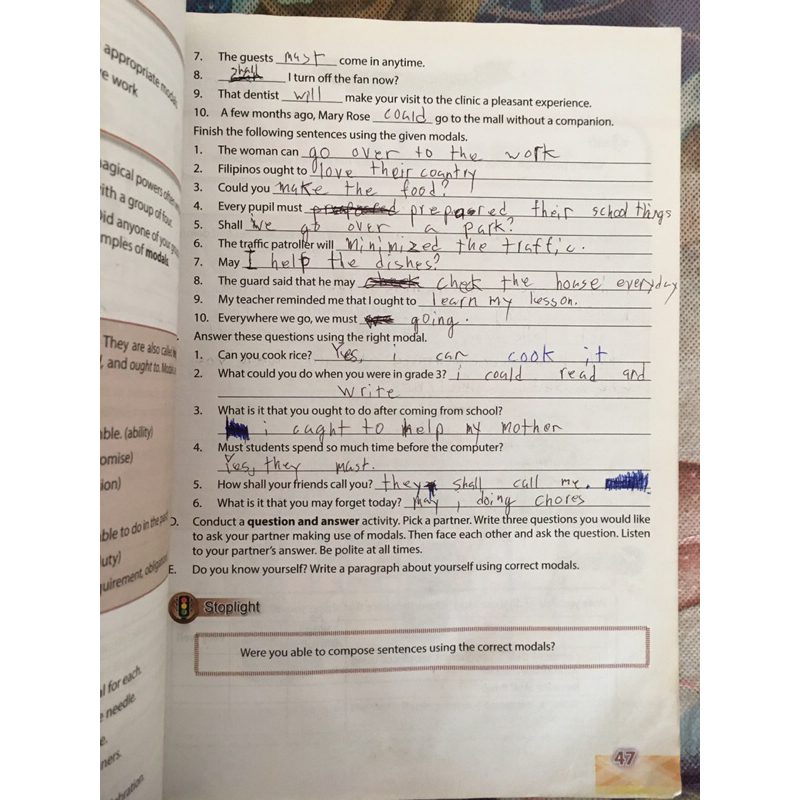 appropriate modal
e work
nagical powers often
ith a group of four.
Did anyone of your
mples of modals.
They are also called
, and ought to.
ble. (ability)
omise)
ion)
ble to do in the past
uty)
quirement, obligation
l for each.
e needle.
e.
ners.
bration.
7. The guests must come in anytime.
8. shall I turn off the fan now?
9. That dentist will make your visit to the clinic a pleasant experience.
10. A few months ago, Mary Rose could go to the mall without a companion.
Finish the following sentences using the given modals.
1. The woman can go over to the work
2. Filipinos ought to love their country
3. Could you make the food?
4. Every pupil must prepaored their school things
5. Shall we go over a park?
6. The traffic patroller will minimized the traffic.
7. May I help the dishes?
8. The guard said that he may check the house everyday
9. My teacher reminded me that I ought to learn my lesson.
10. Everywhere we go, we must going.
Answer these questions using the right modal.
1. Can you cook rice? Yes, i can cook it
2. What could you do when you were in grade 3? i could read and
write
3. What is it that you ought to do after coming from school?
i ought to help my mother
4. Must students spend so much time before the computer?
Yes, they must.
5. How shall your friends call you? they shall call me.
6. What is it that you may forget today? may, doing chores
D. Conduct a question and answer activity. Pick a partner. Write three questions you would like
to ask your partner making use of modals. Then face each other and ask the question. Listen
to your partner's answer. Be polite at all times.
E. Do you know yourself? Write a paragraph about yourself using correct modals.
Stoplight
Were you able to compose sentences using the correct modals?
47